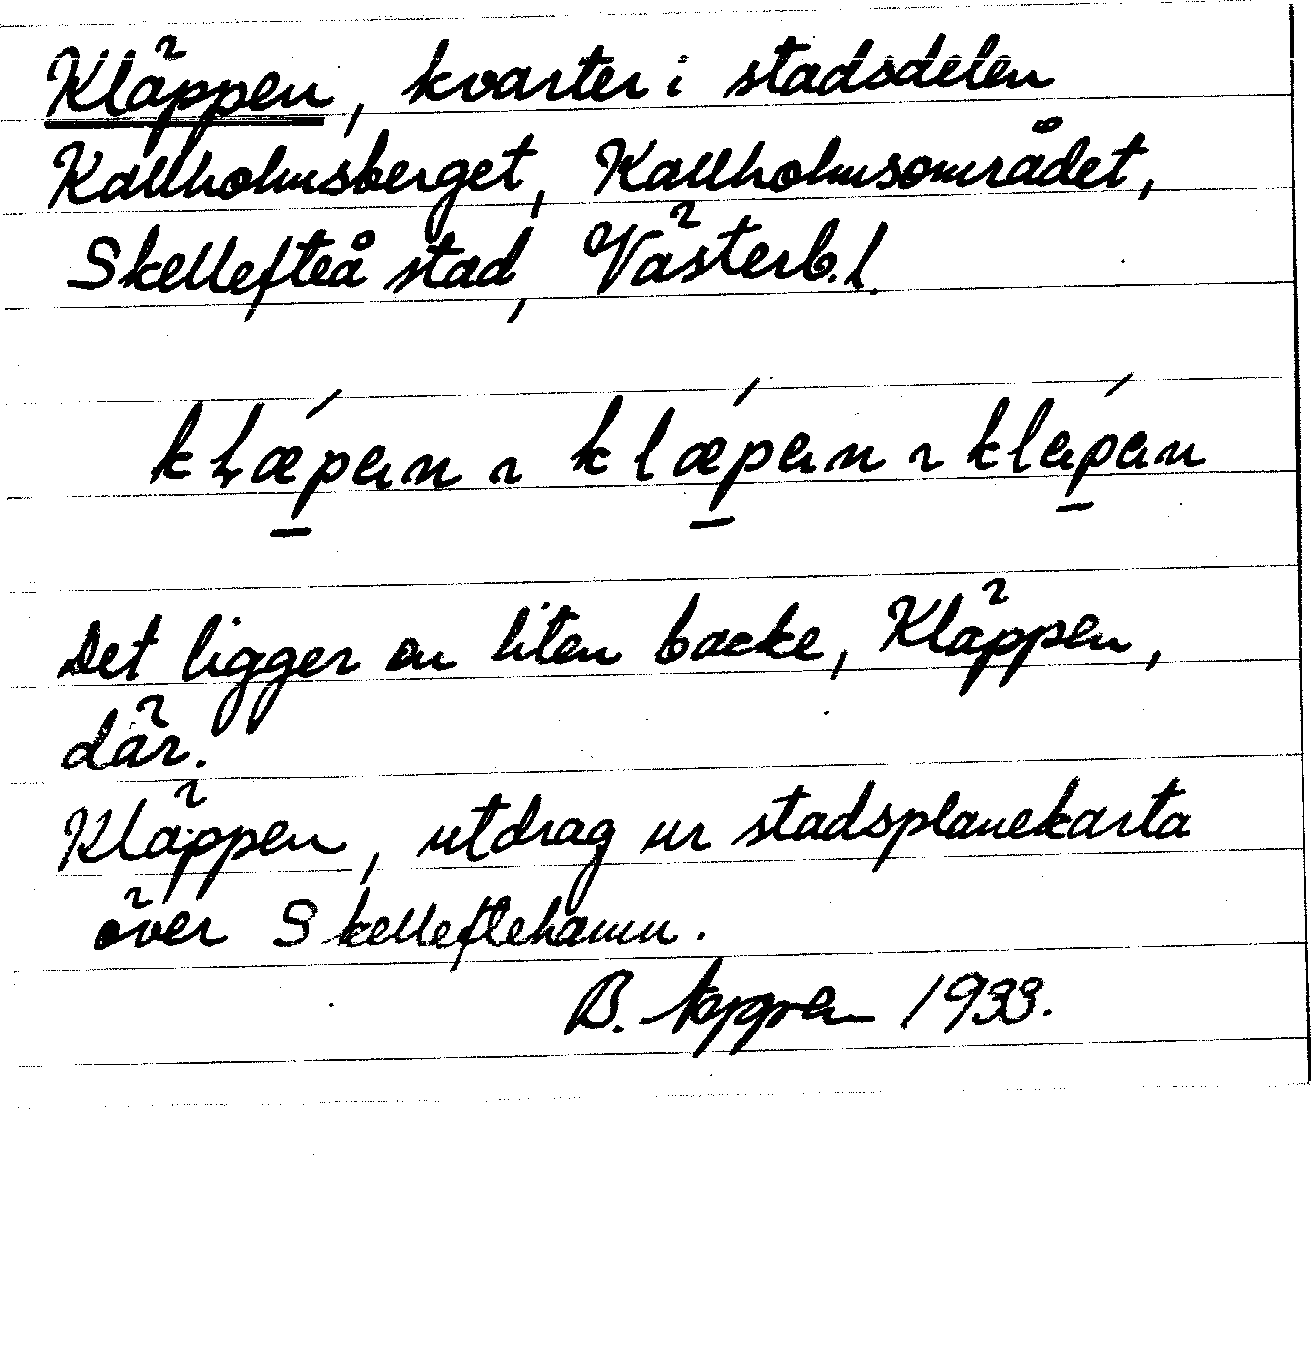 Kläppen, kvarter i stadsdelen
Kallholmsberget, Kallholmsområdet,
Skellefteå stad, Västerb.l.
Det ligger en liten backe, Kläppen,
där.
Kläppen, utdrag ur stadsplanekarta
över Skelleftehamn.
B. 1933.